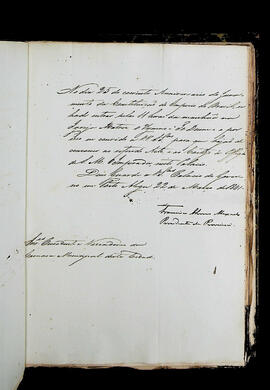 No dia 25 do corrente Anniversario do Jura-
mento da Constituição do Imperio do Brasil, se
hade cantar pelas 11 horas da manhãa na
Igreja Matriz o Hymno Te Deum: e
por isso convido a V. S.as para que hajão de
concorrer ao referido Acto, e ao Cortejo à Effigie
de S. M. o Imperador, neste Palacio.
Deos Guarde a V. S.as Palacio do Gover-
no em Porto Alegre 22 de Março de
Presidente da Provincia
Snr.es Presidente e Vereadores da
Camara Municipal desta Cidade.